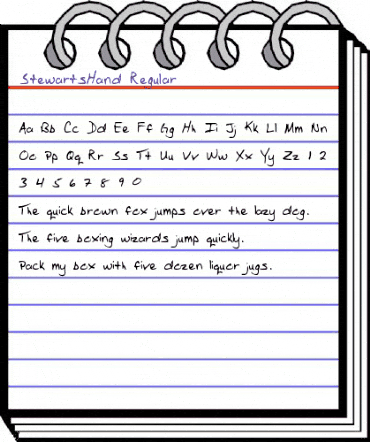 StewartsHand Regular
Aa Bb Cc Dd Ee Ff Gg Hh Ii Jj Kk Ll Mm Nn
Oo Pp Qq Rr Ss Tt Uu Vv Ww Xx Yy Zz 1 2
3 4 5 6 7 8 9 0
The quick brown fox jumps over the lazy dog.
The five boxing wizards jump quickly.
Pack my box with five dozen liquor jugs.